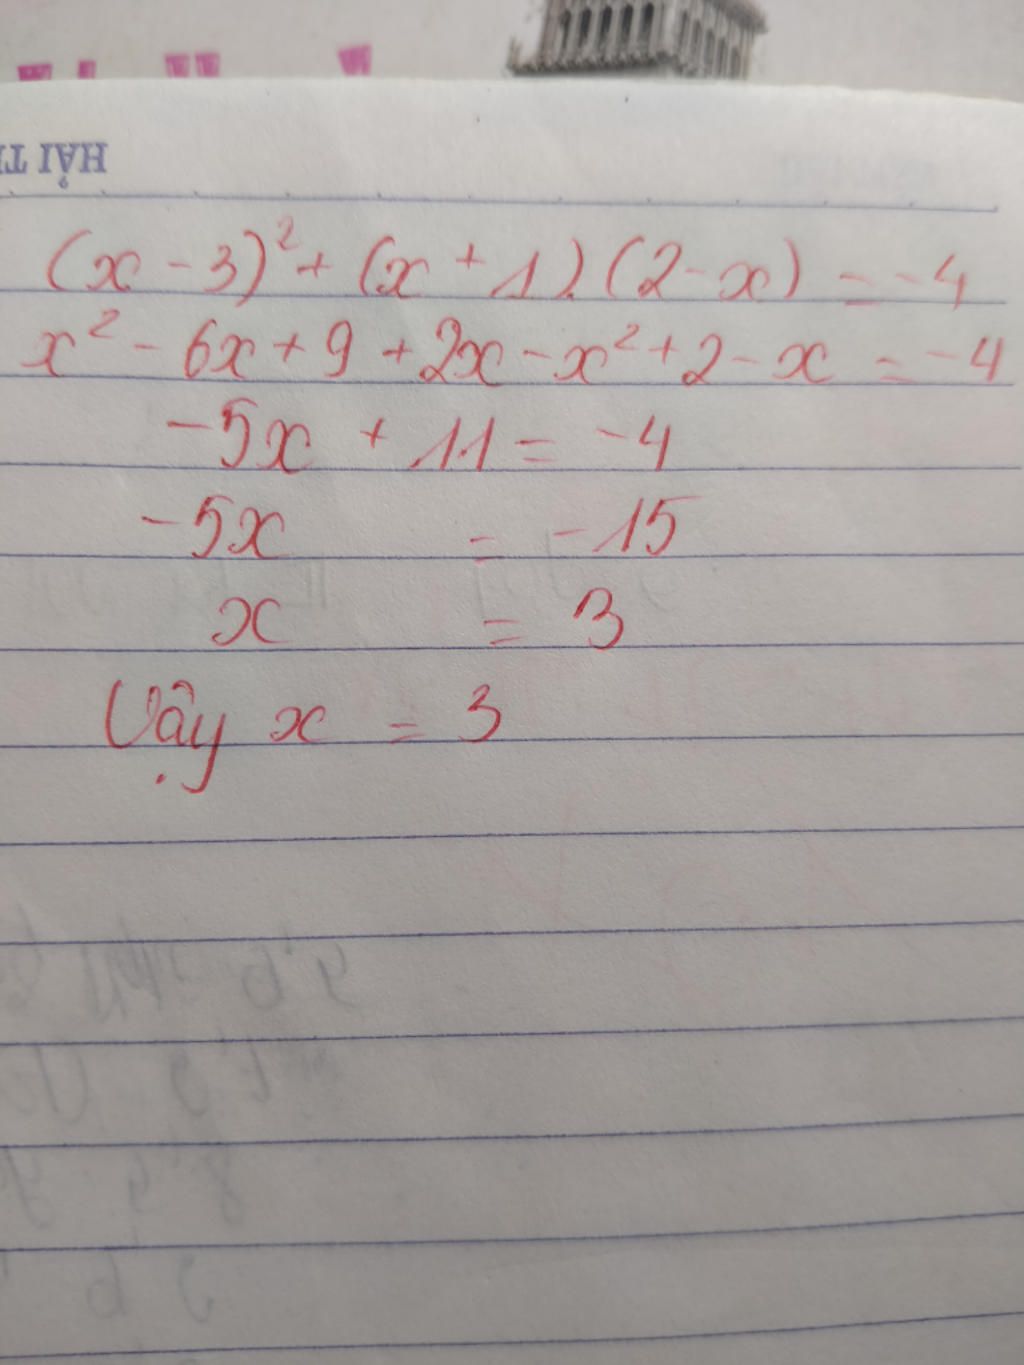 HẢI T
(x - 3)² + (x + 1).(2 - x) = -4
x² - 6x + 9 + 2x - x² + 2 - x = -4
-5x + 11 = -4
-5x = -15
x = 3
Vậy x = 3